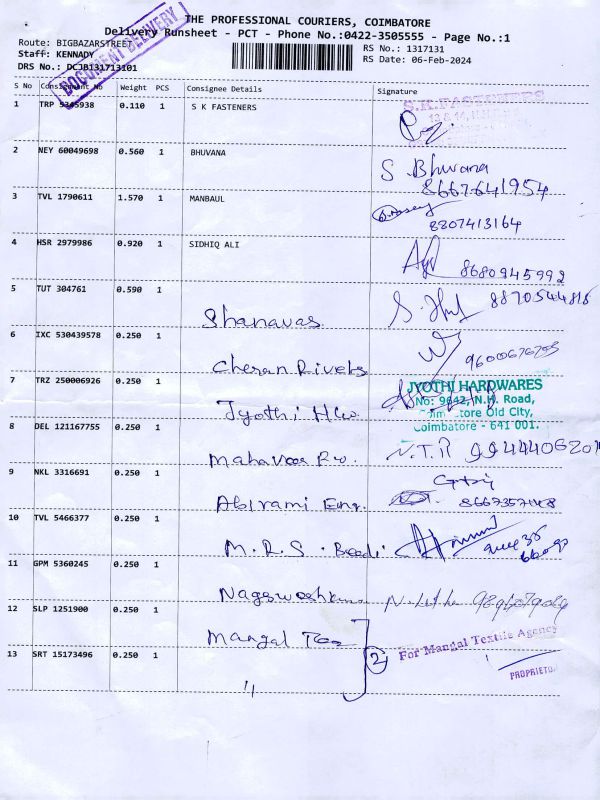 THE PROFESSIONAL COURIERS, COIMBATORE
Delivery Runsheet - PCT - Phone No.:0422-3505555 - Page No.:1
Route: BIGBAZARSTREET
RS No.: 1317131
Staff: KENNADY
RS Date: 06-Feb-2024
DRS No.: DCJB131713101
DOCUMENT DELIVERY
S No Consignment No Weight PCS Consignee Details Signature
1 TRP 5345938 0.110 1 S K FASTENERS
S.K.FASTENERS
2 NEY 60049698 0.560 1 BHUVANA
S. Bhuvana
8667641954
3 TVL 1790611 1.570 1 MANBAUL
8807413164
4 HSR 2979986 0.920 1 SIDHIQ ALI
8680945992
5 TUT 304761 0.590 1
Shanavas
8870544816
6 IXC 530439578 0.250 1
Cheran Rivets
7 TRZ 250006926 0.250 1
Jyothi H/w
JYOTHI HARDWARES
No: 9642, N.H. Road,
Old City,
Coimbatore - 641 001.
8 DEL 121167755 0.250 1
N.T.R
9 NKL 3316691 0.250 1
Abirami Eng.
10 TVL 5466377 0.250 1
M.R.S.
11 GPM 5360245 0.250 1
12 SLP 1251900 0.250 1
Mangal Tex
2
For Mangal Textile Agency
PROPRIETOR
13 SRT 15173496 0.250 1
"